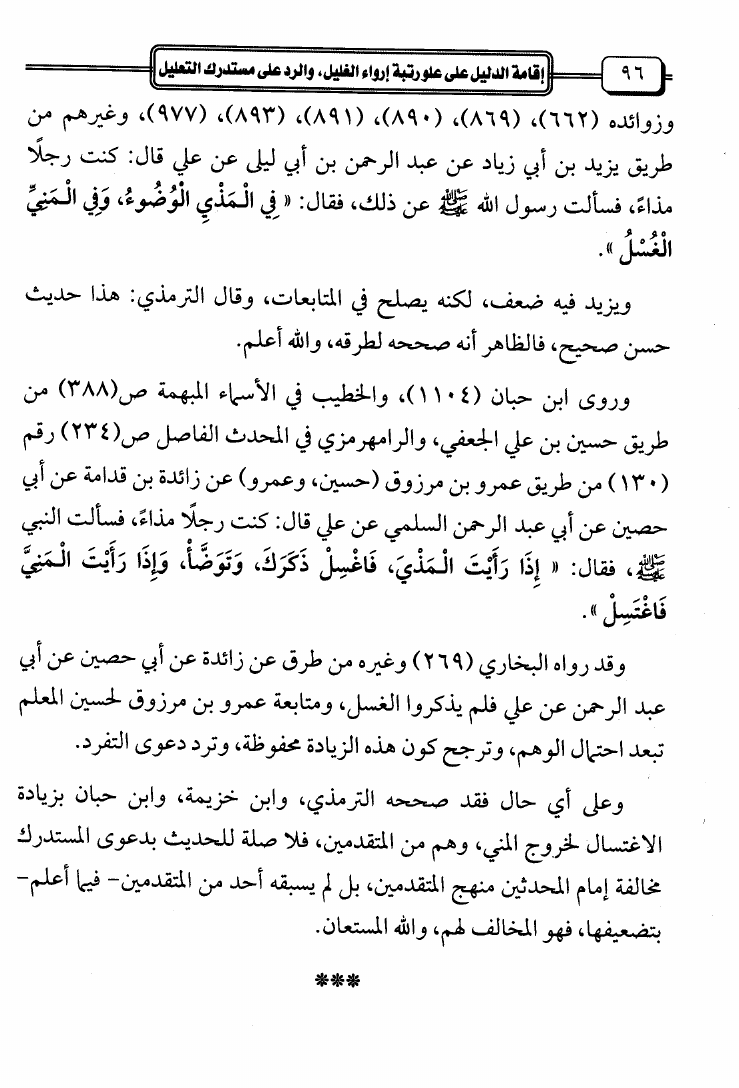 ٩٦
إقامة الدليل على علو رتبة إرواء الغليل، والرد على مستدرك التعليل
وزوائده (٦٦٢)، (٨٦٩)، (٨٩٠)، (٨٩١)، (٨٩٣)، (٩٧٧)، وغيرهم من
طريق يزيد بن أبي زياد عن عبد الرحمن بن أبي ليلى عن علي قال: كنت رجلًا
مذاءً، فسألت رسول الله ﷺ عن ذلك، فقال: « فِي الْمَذْيِ الْوُضُوءُ، وَفِي الْمَنِيِّ
الْغُسْلُ ».
ويزيد فيه ضعف، لكنه يصلح في المتابعات، وقال الترمذي: هذا حديث
حسن صحيح، فالظاهر أنه صححه لطرقه، والله أعلم.
وروى ابن حبان (١١٠٤)، والخطيب في الأسماء المبهمة ص(٣٨٨) من
طريق حسين بن علي الجعفي، والرامهرمزي في المحدث الفاصل ص(٢٣٤) رقم
(١٣٠) من طريق عمرو بن مرزوق (حسين، وعمرو) عن زائدة بن قدامة عن أبي
حصين عن أبي عبد الرحمن السلمي عن علي قال: كنت رجلًا مذاءً، فسألت النبي
ﷺ، فقال: « إِذَا رَأَيْتَ الْمَذْيَ، فَاغْسِلْ ذَكَرَكَ، وَتَوَضَّأْ، وَإِذَا رَأَيْتَ الْمَنِيَّ
فَاغْتَسِلْ ».
وقد رواه البخاري (٢٦٩) وغيره من طرق عن زائدة عن أبي حصين عن أبي
عبد الرحمن عن علي فلم يذكروا الغسل، ومتابعة عمرو بن مرزوق لحسين المعلم
تبعد احتمال الوهم، وترجح كون هذه الزيادة محفوظة، وترد دعوى التفرد.
وعلى أي حال فقد صححه الترمذي، وابن خزيمة، وابن حبان بزيادة
الاغتسال لخروج المني، وهم من المتقدمين، فلا صلة للحديث بدعوى المستدرك
مخالفة إمام المحدثين منهج المتقدمين، بل لم يسبقه أحد من المتقدمين- فيما أعلم-
بتضعيفها، فهو المخالف لهم، والله المستعان.
***